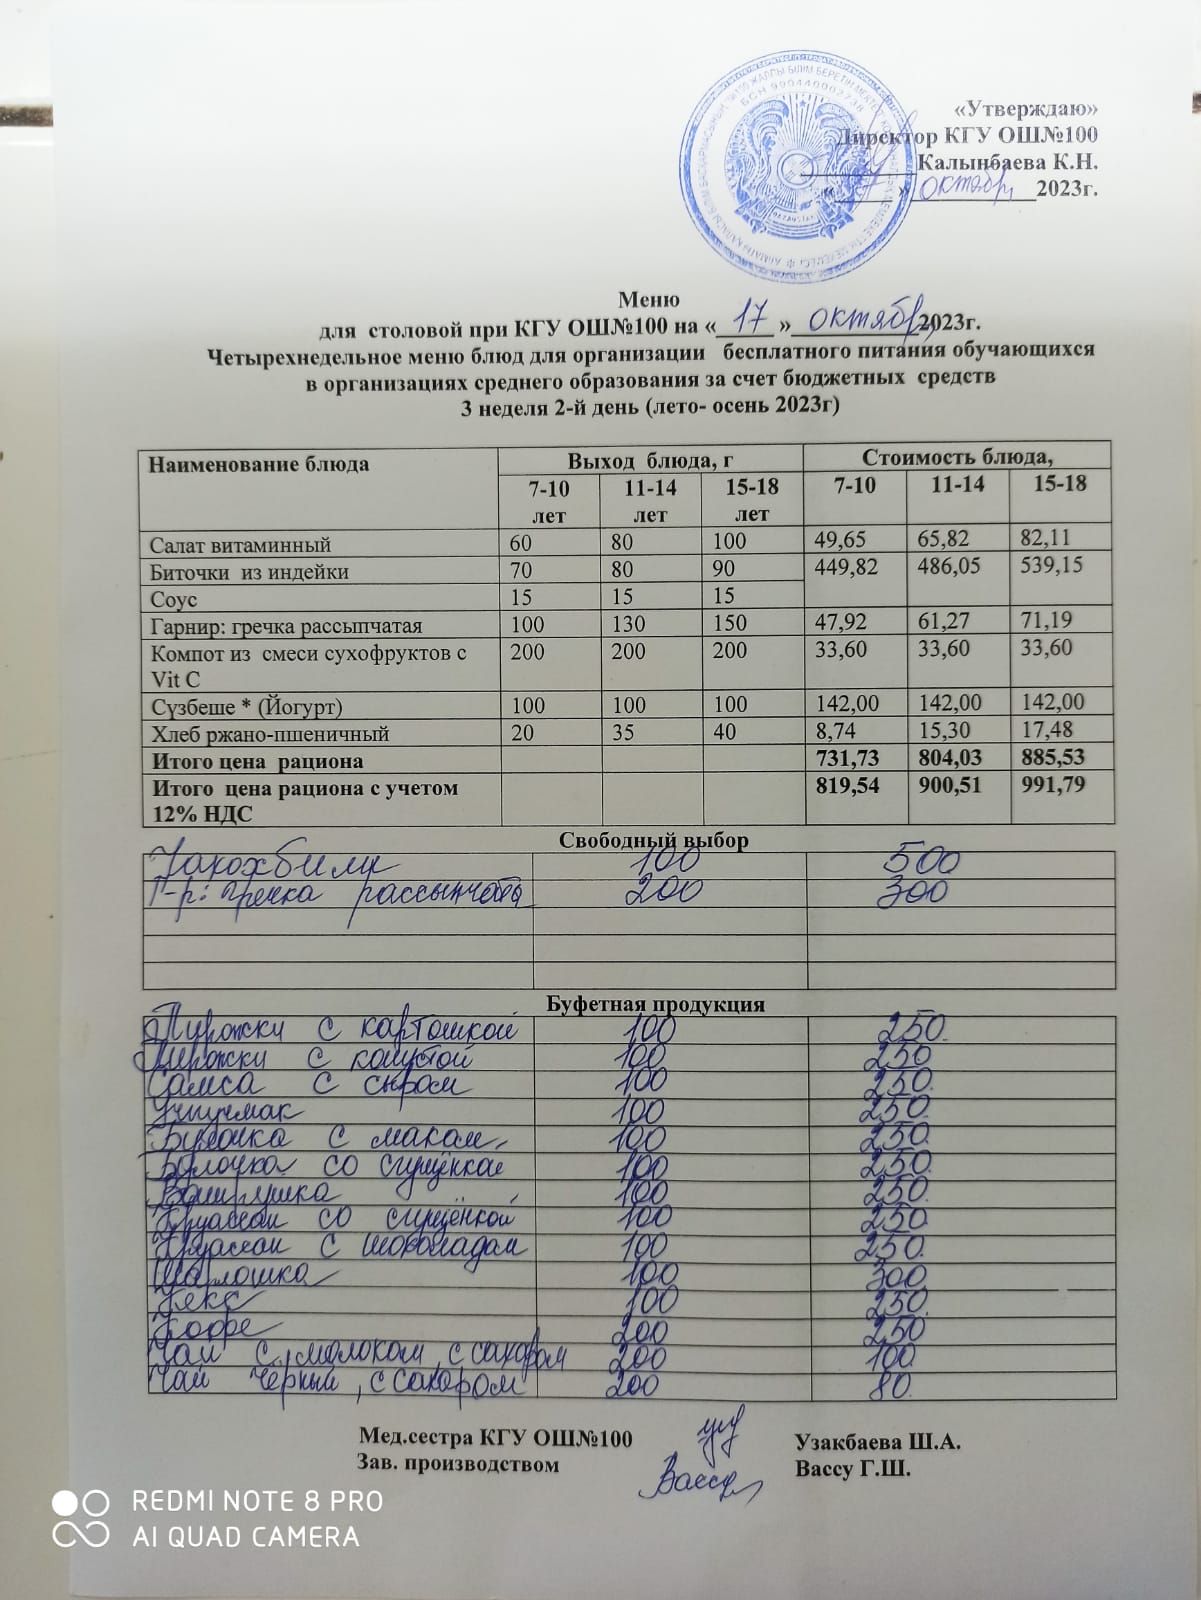 «Утверждаю»
Директор КГУ ОШ№100
Калынбаева К.Н.
«17» октябрь 2023г.
Меню
для столовой при КГУ ОШ№100 на « 17 » октябрь 2023г.
Четырехнедельное меню блюд для организации бесплатного питания обучающихся
в организациях среднего образования за счет бюджетных средств
3 неделя 2-й день (лето- осень 2023г)
Наименование блюда Выход блюда, г Стоимость блюда,
7-10 лет 11-14 лет 15-18 лет 7-10 11-14 15-18
Салат витаминный 60 80 100 49,65 65,82 82,11
Биточки из индейки 70 80 90 449,82 486,05 539,15
Соус 15 15 15
Гарнир: гречка рассыпчатая 100 130 150 47,92 61,27 71,19
Компот из смеси сухофруктов с 200 200 200 33,60 33,60 33,60
Vit C
Сүзбеше * (Йогурт) 100 100 100 142,00 142,00 142,00
Хлеб ржано-пшеничный 20 35 40 8,74 15,30 17,48
Итого цена рациона 731,73 804,03 885,53
Итого цена рациона с учетом 819,54 900,51 991,79
12% НДС
Свободный выбор
Чахохбили 100 500
Г-р: гречка рассыпчата 200 300
Буфетная продукция
Пирожки с картошкой 100 250
Пирожки с капустой 100 250
Самса с сыром 100 250
Учпучмак 100 250
Булочка с маком 100 250
Булочка со сгущёнкой 100 250
Ватрушка 100 250
Круассан со сгущёнкой 100 250
Круассан с шоколадом 100 250
100 300
Кекс 100 250
Кофе 200 250
Чай с молоком, с сахаром 200 100
Чай чёрный, с сахаром 200 80
Мед.сестра КГУ ОШ№100 Узакбаева Ш.А.
Зав. производством Вассу Г.Ш.
REDMI NOTE 8 PRO
AI QUAD CAMERA